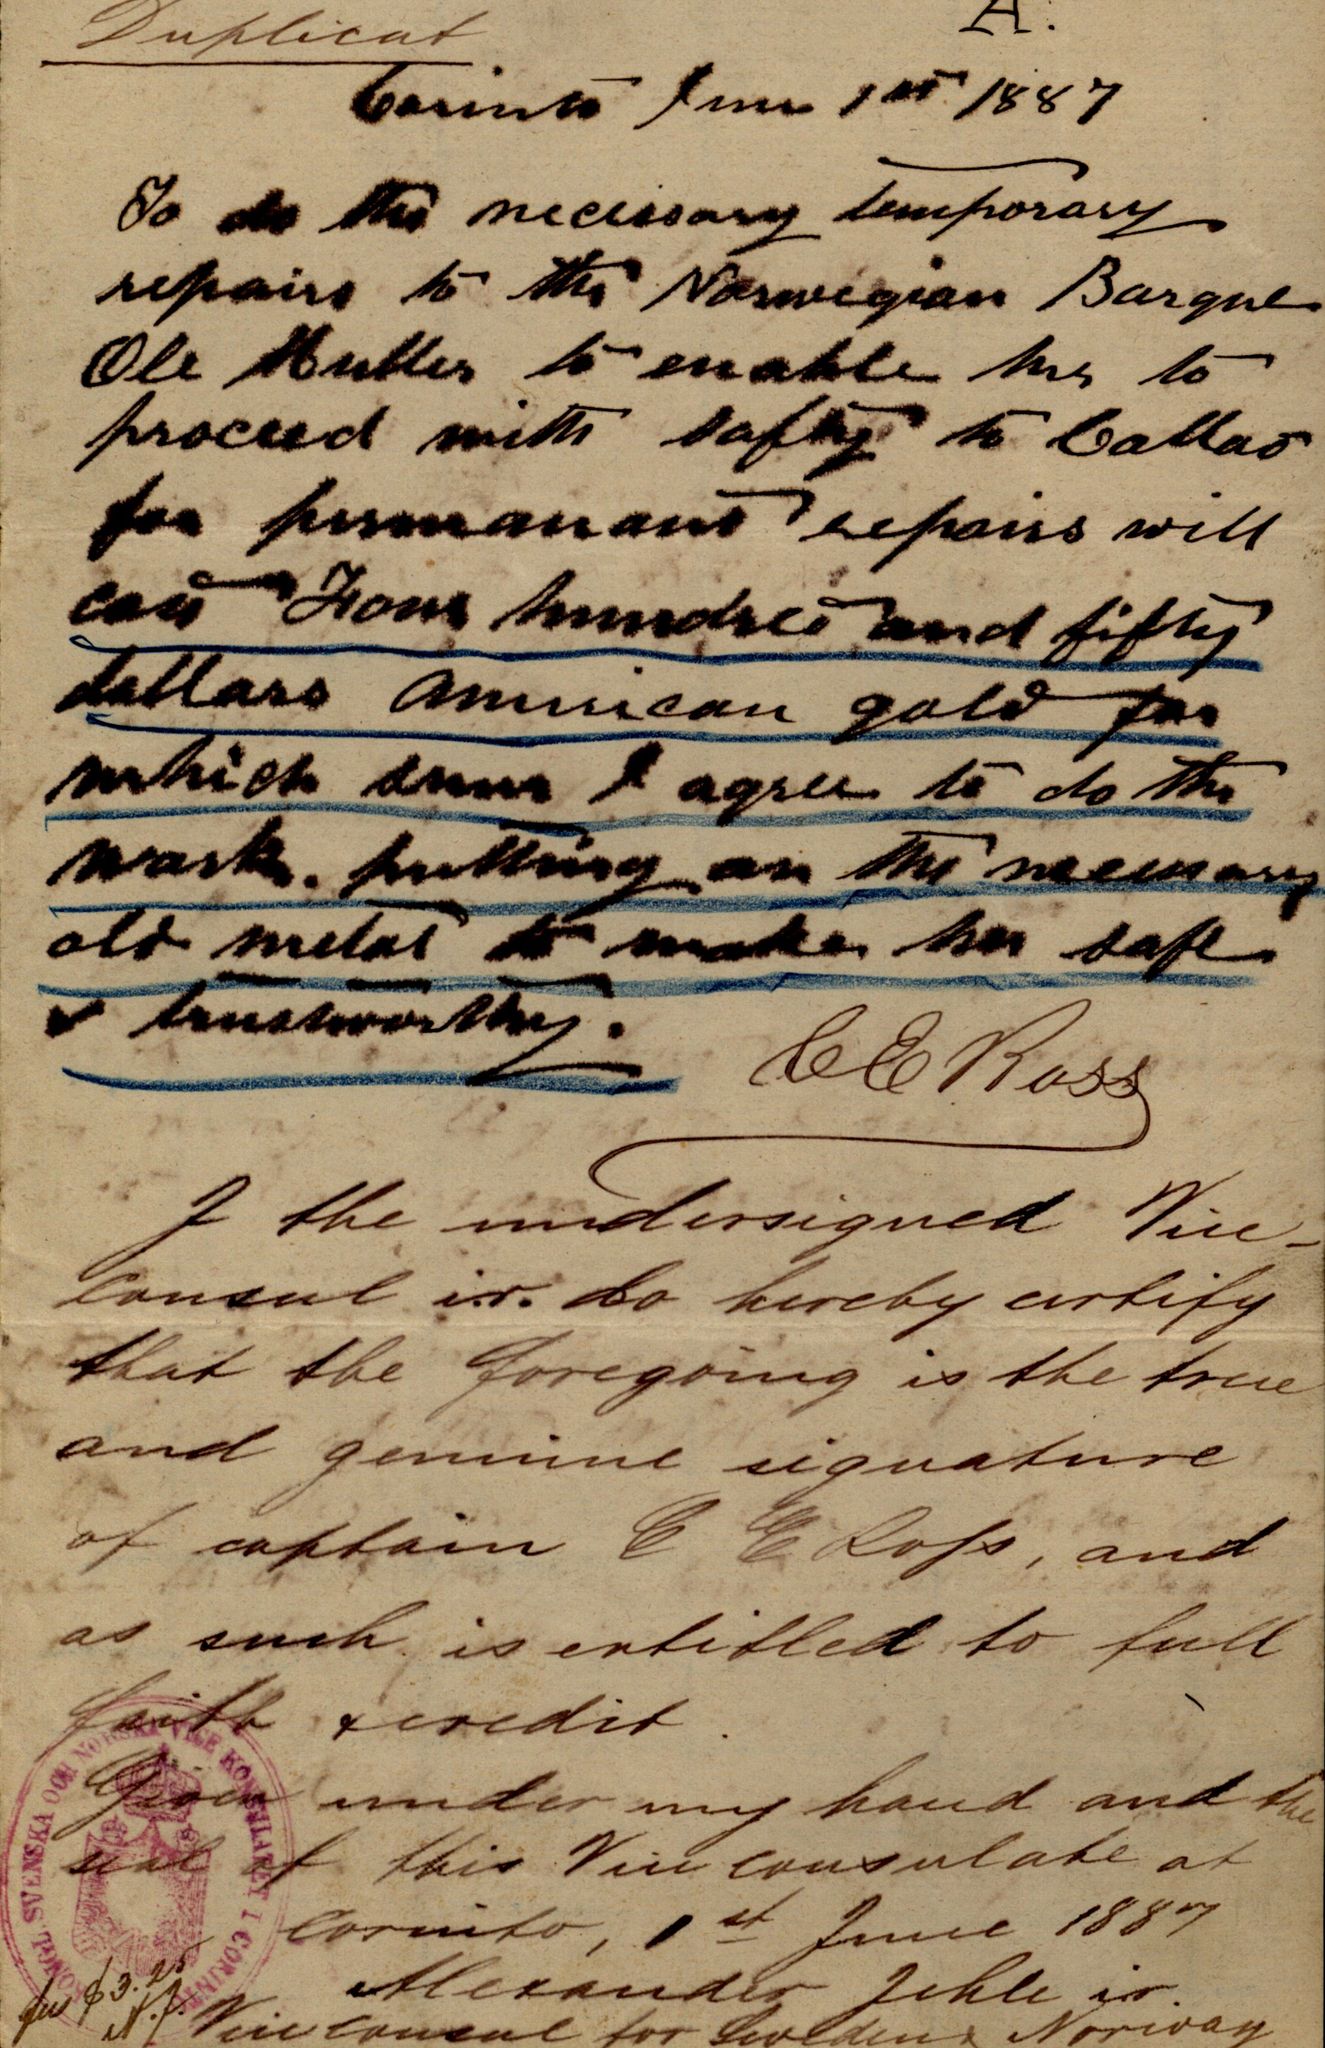 Duplicat
A.
Corinto June 1st 1887
To do the necessary temporary
repairs to the Norwegian Barque
Ole Muller to enable her to
proceed with safty to Callao
for permanant repairs will
cost Four hundred and fifty
dollars American gold for
which sum I agree to do the
work. putting on the necessary
old metal to make her safe
& trustworthy.
C E Ross
I the undersigned Vice-
consul ir. do hereby certify
that the foregoing is the true
and genuine signature
of captain C E Ross, and
as such is entitled to full
faith & credit.
Given under my hand and the
seal of this Vice consulate at
Corinto, 1st June 1887
Alexander Jehle ir.
Vice consul for Sweden & Norway
KONGL. SVENSKA OCH NORSKA VICE KONSULATET I CORINTO
fee $3.25